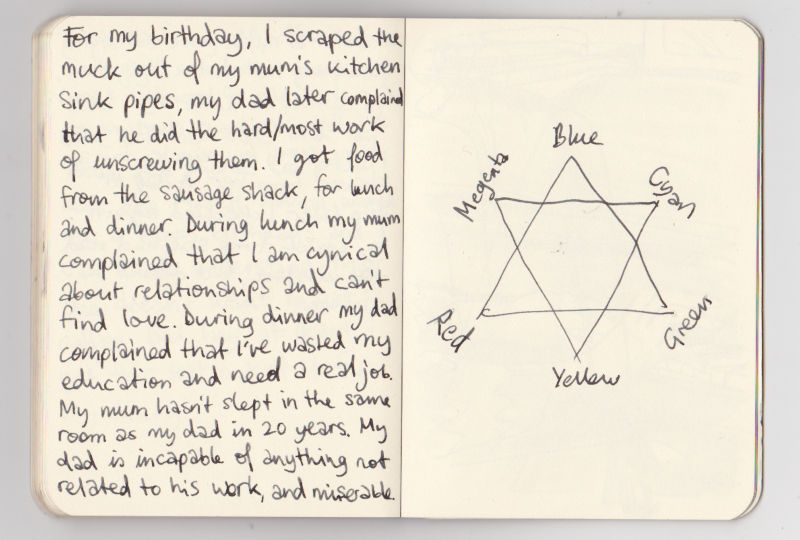 For my birthday, I scraped the
muck out of my mum's kitchen
sink pipes, my dad later complained
that he did the hard/most work
of unscrewing them. I got food
from the sausage shack, for lunch
and dinner. During lunch my mum
complained that I am cynical
about relationships and can't
find love. During dinner my dad
complained that I've wasted my
education and need a real job.
My mum hasn't slept in the same
room as my dad in 20 years. My
dad is incapable of anything not
related to his work, and miserable.
Blue
Megenta
Cyan
Red
Green
Yellow